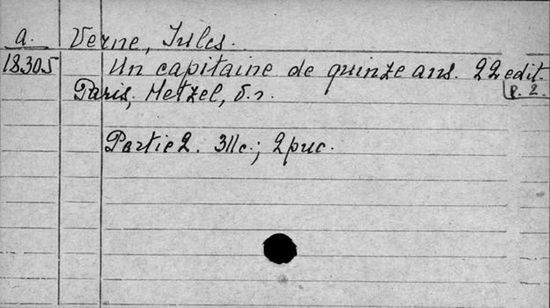 a. Verne, Jules.
18305 Un capitaine de quinze ans. 22 edit.
Paris, Hetzel, б.г. P. 2.
Partie 2. 311 с.; 2 рис.